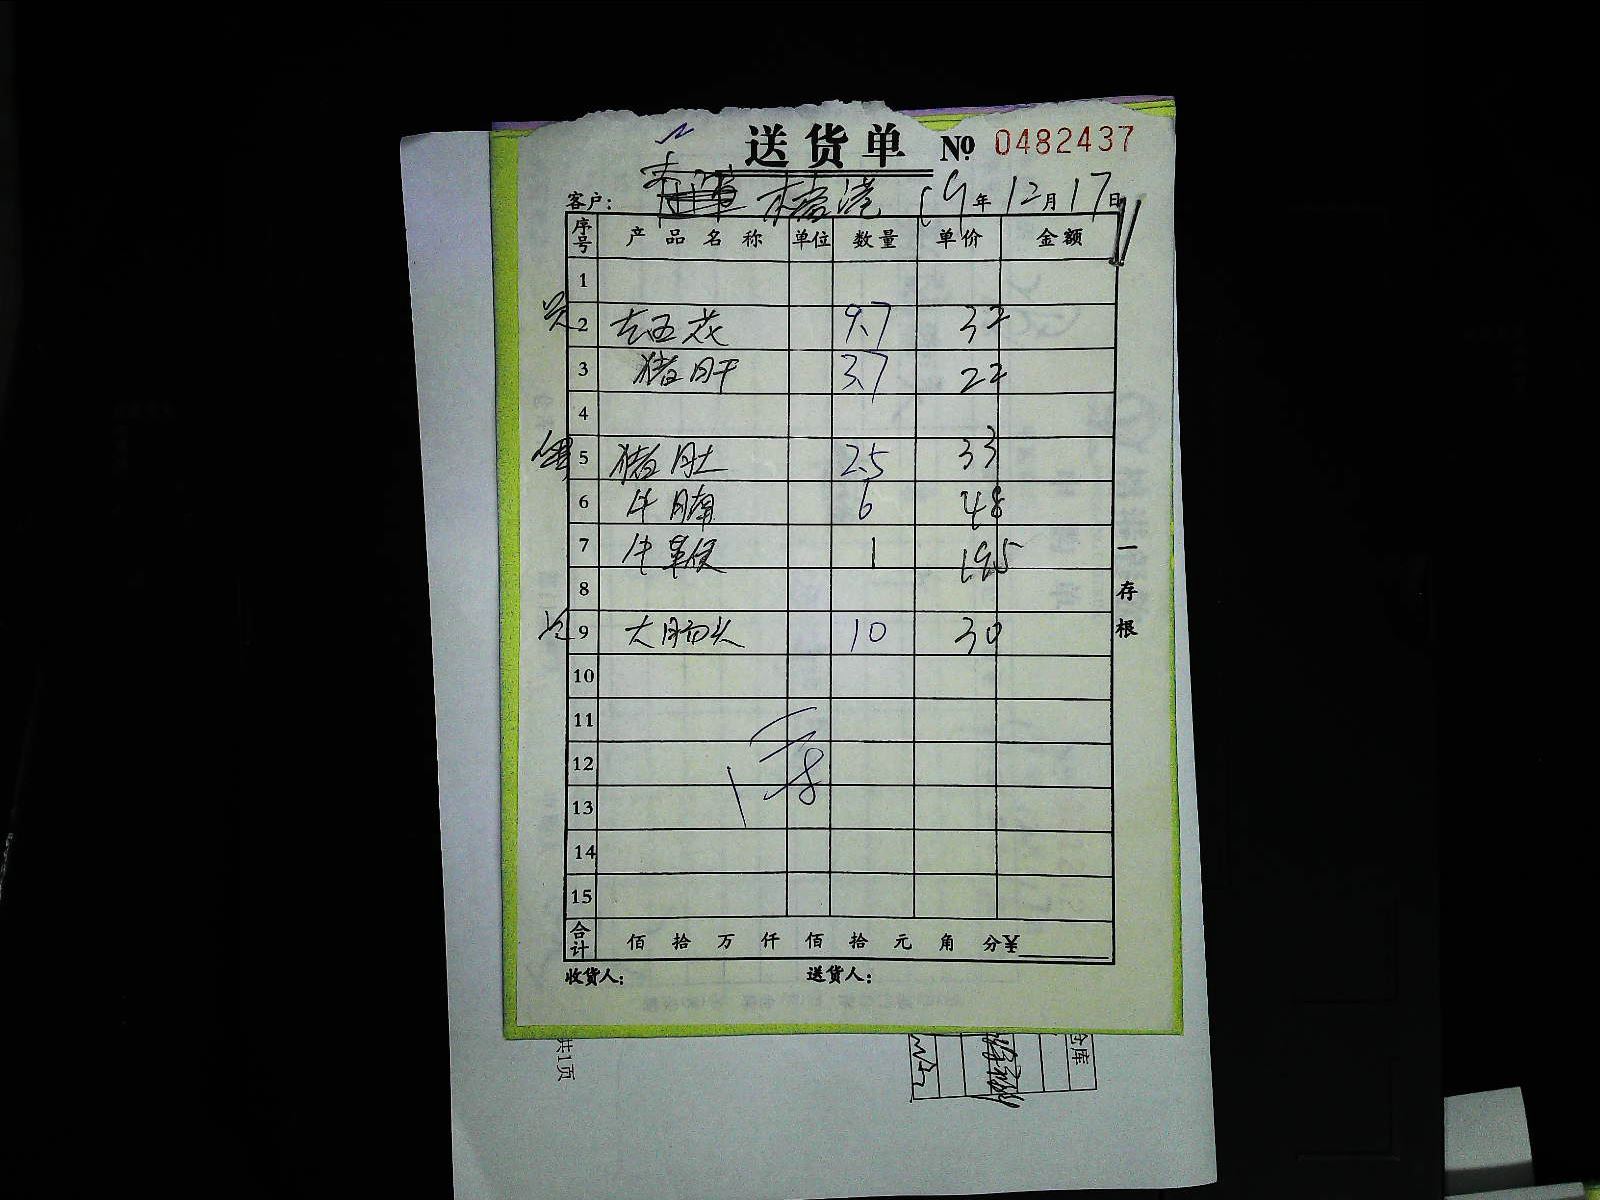 送货单 № 0482437
客户: 19年12月17日
序号 产品名称 单位 数量 单价 金额
1
2 去五花 9.7 37
3 猪肝 3.7 22
4
5 猪肚 2.5 33
6 牛腩 6 48
7 牛草 1 19.5
8
9 大肠头 10 30
10
11
12
13
14
15
合计 佰 拾 万 仟 佰 拾 元 角 分 ¥
收货人: 送货人:
一存根
共1页
仓库